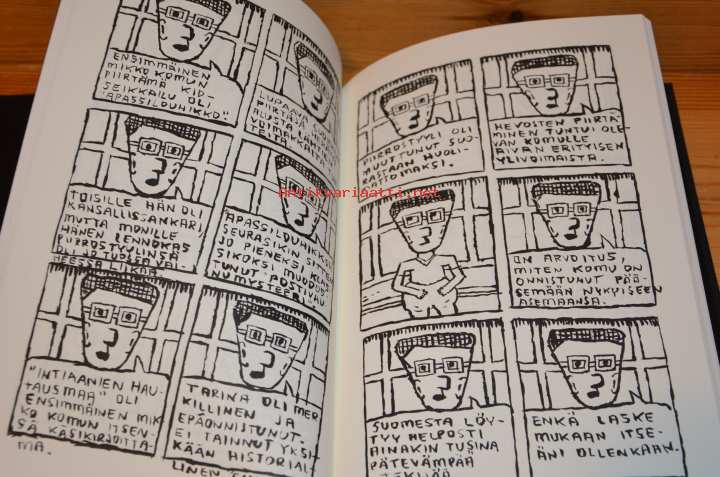 ENSIMMÄINEN
MIKKO KOMUN
PIIRTÄMÄ KIR-
SEIKKAILU OLI
"APASSILDUHIKKO".
LUPAAVA
TOISILLE HÄN OLI
KANSALLISSANKARI
MUTTA MONILLE
HÄNEN LENNOKAS
PIIRROSTYYLINSÄ
OLI JO TUOSSA VAI-
HEESSA LIIKAA.
APASSILDUHIKKOA
SEURASIKIN SITTEN
JO PIENEKSI KLAS-
SIKOKSI MUODOS-
TUNUT "POSTIVAU-
NU MYSTEERI"
"INTIAANIEN HAU-
TAUSMAA" OLI
ENSIMMÄINEN MIK-
KO KOMUN ITSEN-
SÄ KÄSIKIRJOITTA-
MA.
TARINA OLI MER-
KILLINEN JA
EPÄONNISTUNUT.
EI TAINNUT YKSI-
KÄÄN HISTORIAL-
LINEN
PIIRROSTYYLI OLI
MUUTTUNUT SUO-
RASTAAN HUOLI-
RATOIMAKSI.
HEVOSTEN PIIRTÄ-
MINEN TUNTUI OLE-
VAN KOMULLE
AIVAN ERITYISEN
YLIVOIMAISTA.
ON ARVOITUS,
MITEN KOMU ON
ONNISTUNUT PÄÄ-
SEMÄÄN NYKYISEEN
ASEMAANSA.
SUOMESTA LÖY-
TYY HELPOSTI
AINAKIN TUSINA
PÄTEVÄMPÄÄ
TEKIJÄÄ
ENKÄ LASKE
MUKAAN ITSE-
ÄNI OLLENKAAN.
Antikvariaatti.net